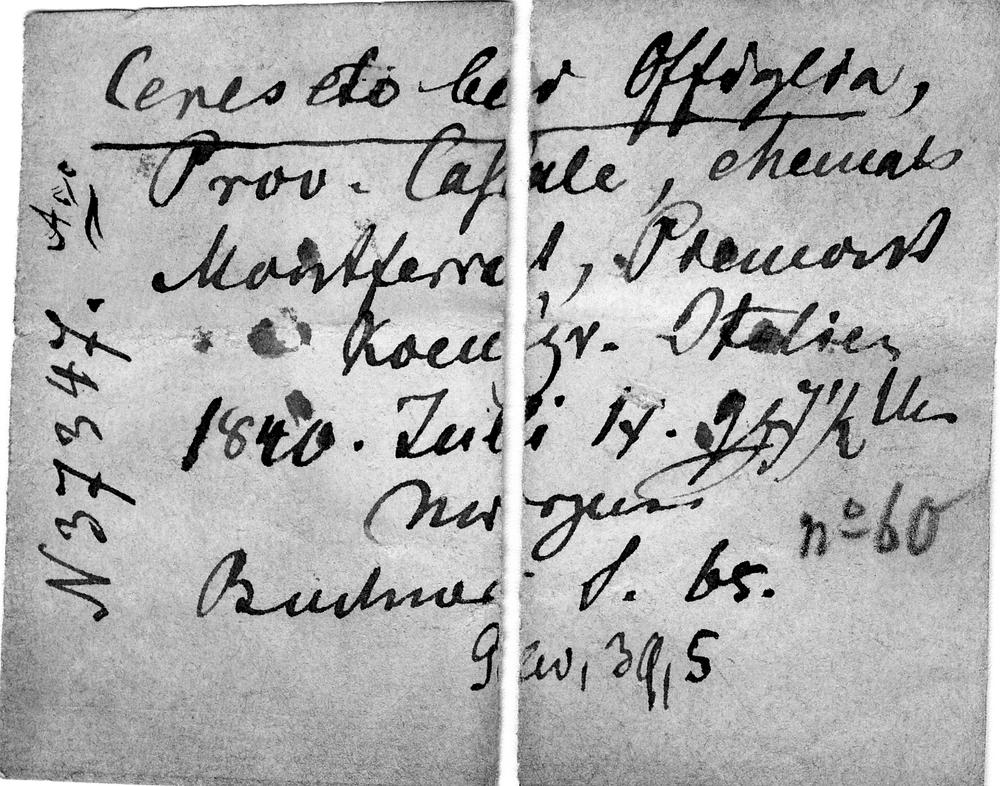 Cereseto bei Offiglia,
Prov. Casale, ehemals
Montferrat, Piemont
Koenigr. Italien
1840. Juli 17. 7½ Uhr
Morgens
Buchner S. 65.
Gew, 39,5
N 37347.
no 60